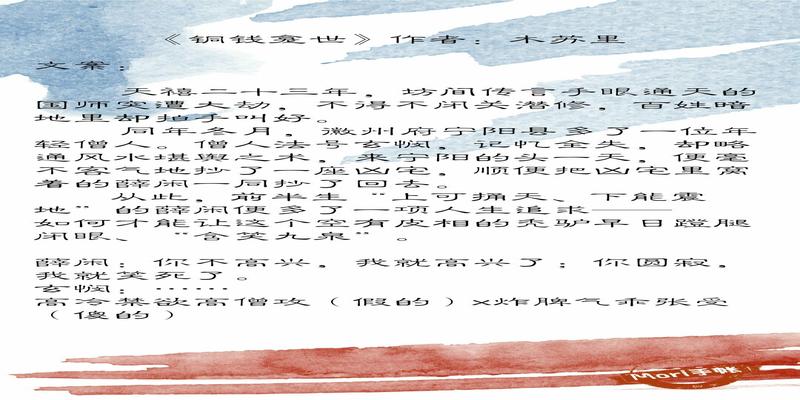 《铜钱龛世》作者：木苏里
文案：
天禧二十三年，坊间传言手眼通天的
国师突遭大劫，不得不闭关潜修，百姓暗
地里却拍手叫好。
同年冬月，徽州府宁阳县多了一位年
轻僧人。僧人法号玄悯，记忆全失，却略
通风水堪舆之术，来宁阳的头一天，便毫
不客气地抄了一座凶宅，顺便把凶宅里窝
着的薛闲一同抄了回去。
从此，前半生“上可捅天、下能震
地”的薛闲便多了一项人生追求——
如何才能让这个空有皮相的秃驴早日蹬腿
闭眼、“含笑九泉”。
薛闲：你不高兴，我就高兴了；你圆寂，
我就笑死了。
玄悯：……
高冷禁欲高僧攻（假的）x炸脾气乖张受
（傻的）
Mori手帐